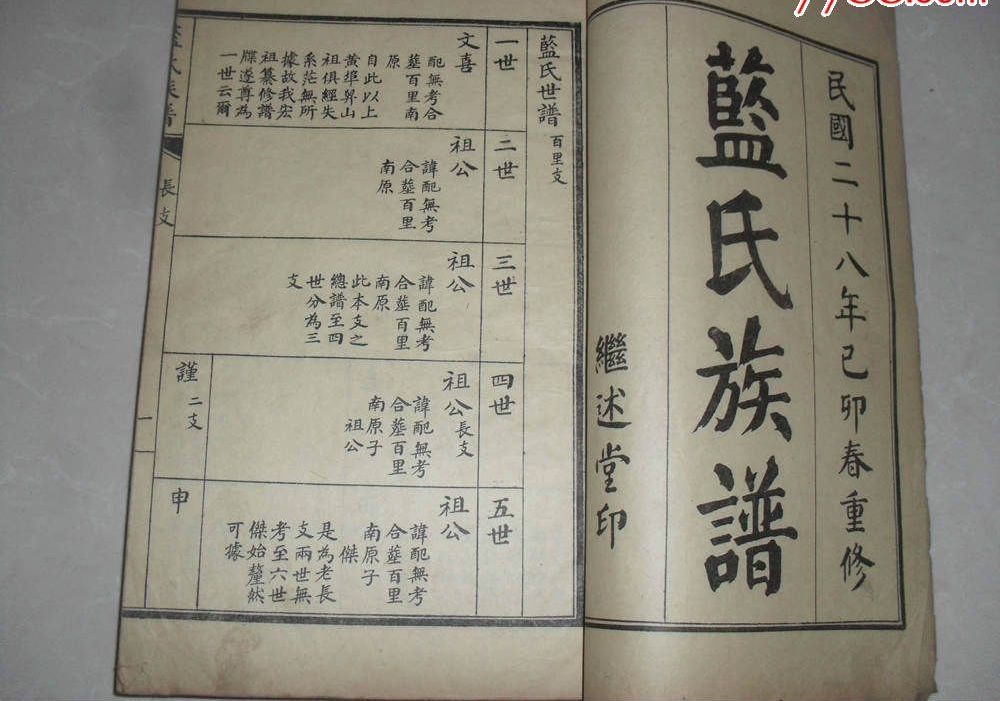 民國二十八年己卯春重修
藍氏族譜
繼述堂印
藍氏世譜 百里支
一世
文喜
配無考合
墓百里南
原
自此以上
黃埠舁山
祖俱經失
系茫無所
據故我宏
祖纂修譜
牒遂尊為
一世云爾
二世
祖公
諱配無考
合墓百里
南原
三世
祖公
諱配無考
合墓百里
南原
此本支之
總譜至四
世分為三
支
四世
祖公長支
諱配無考
合墓百里
南原子
祖公
謹二支
五世
祖公
諱配無考
合墓百里
南原子
傑
是為老長
支兩世無
考至六世
傑始釐然
可據
申
氏族譜
長支
一